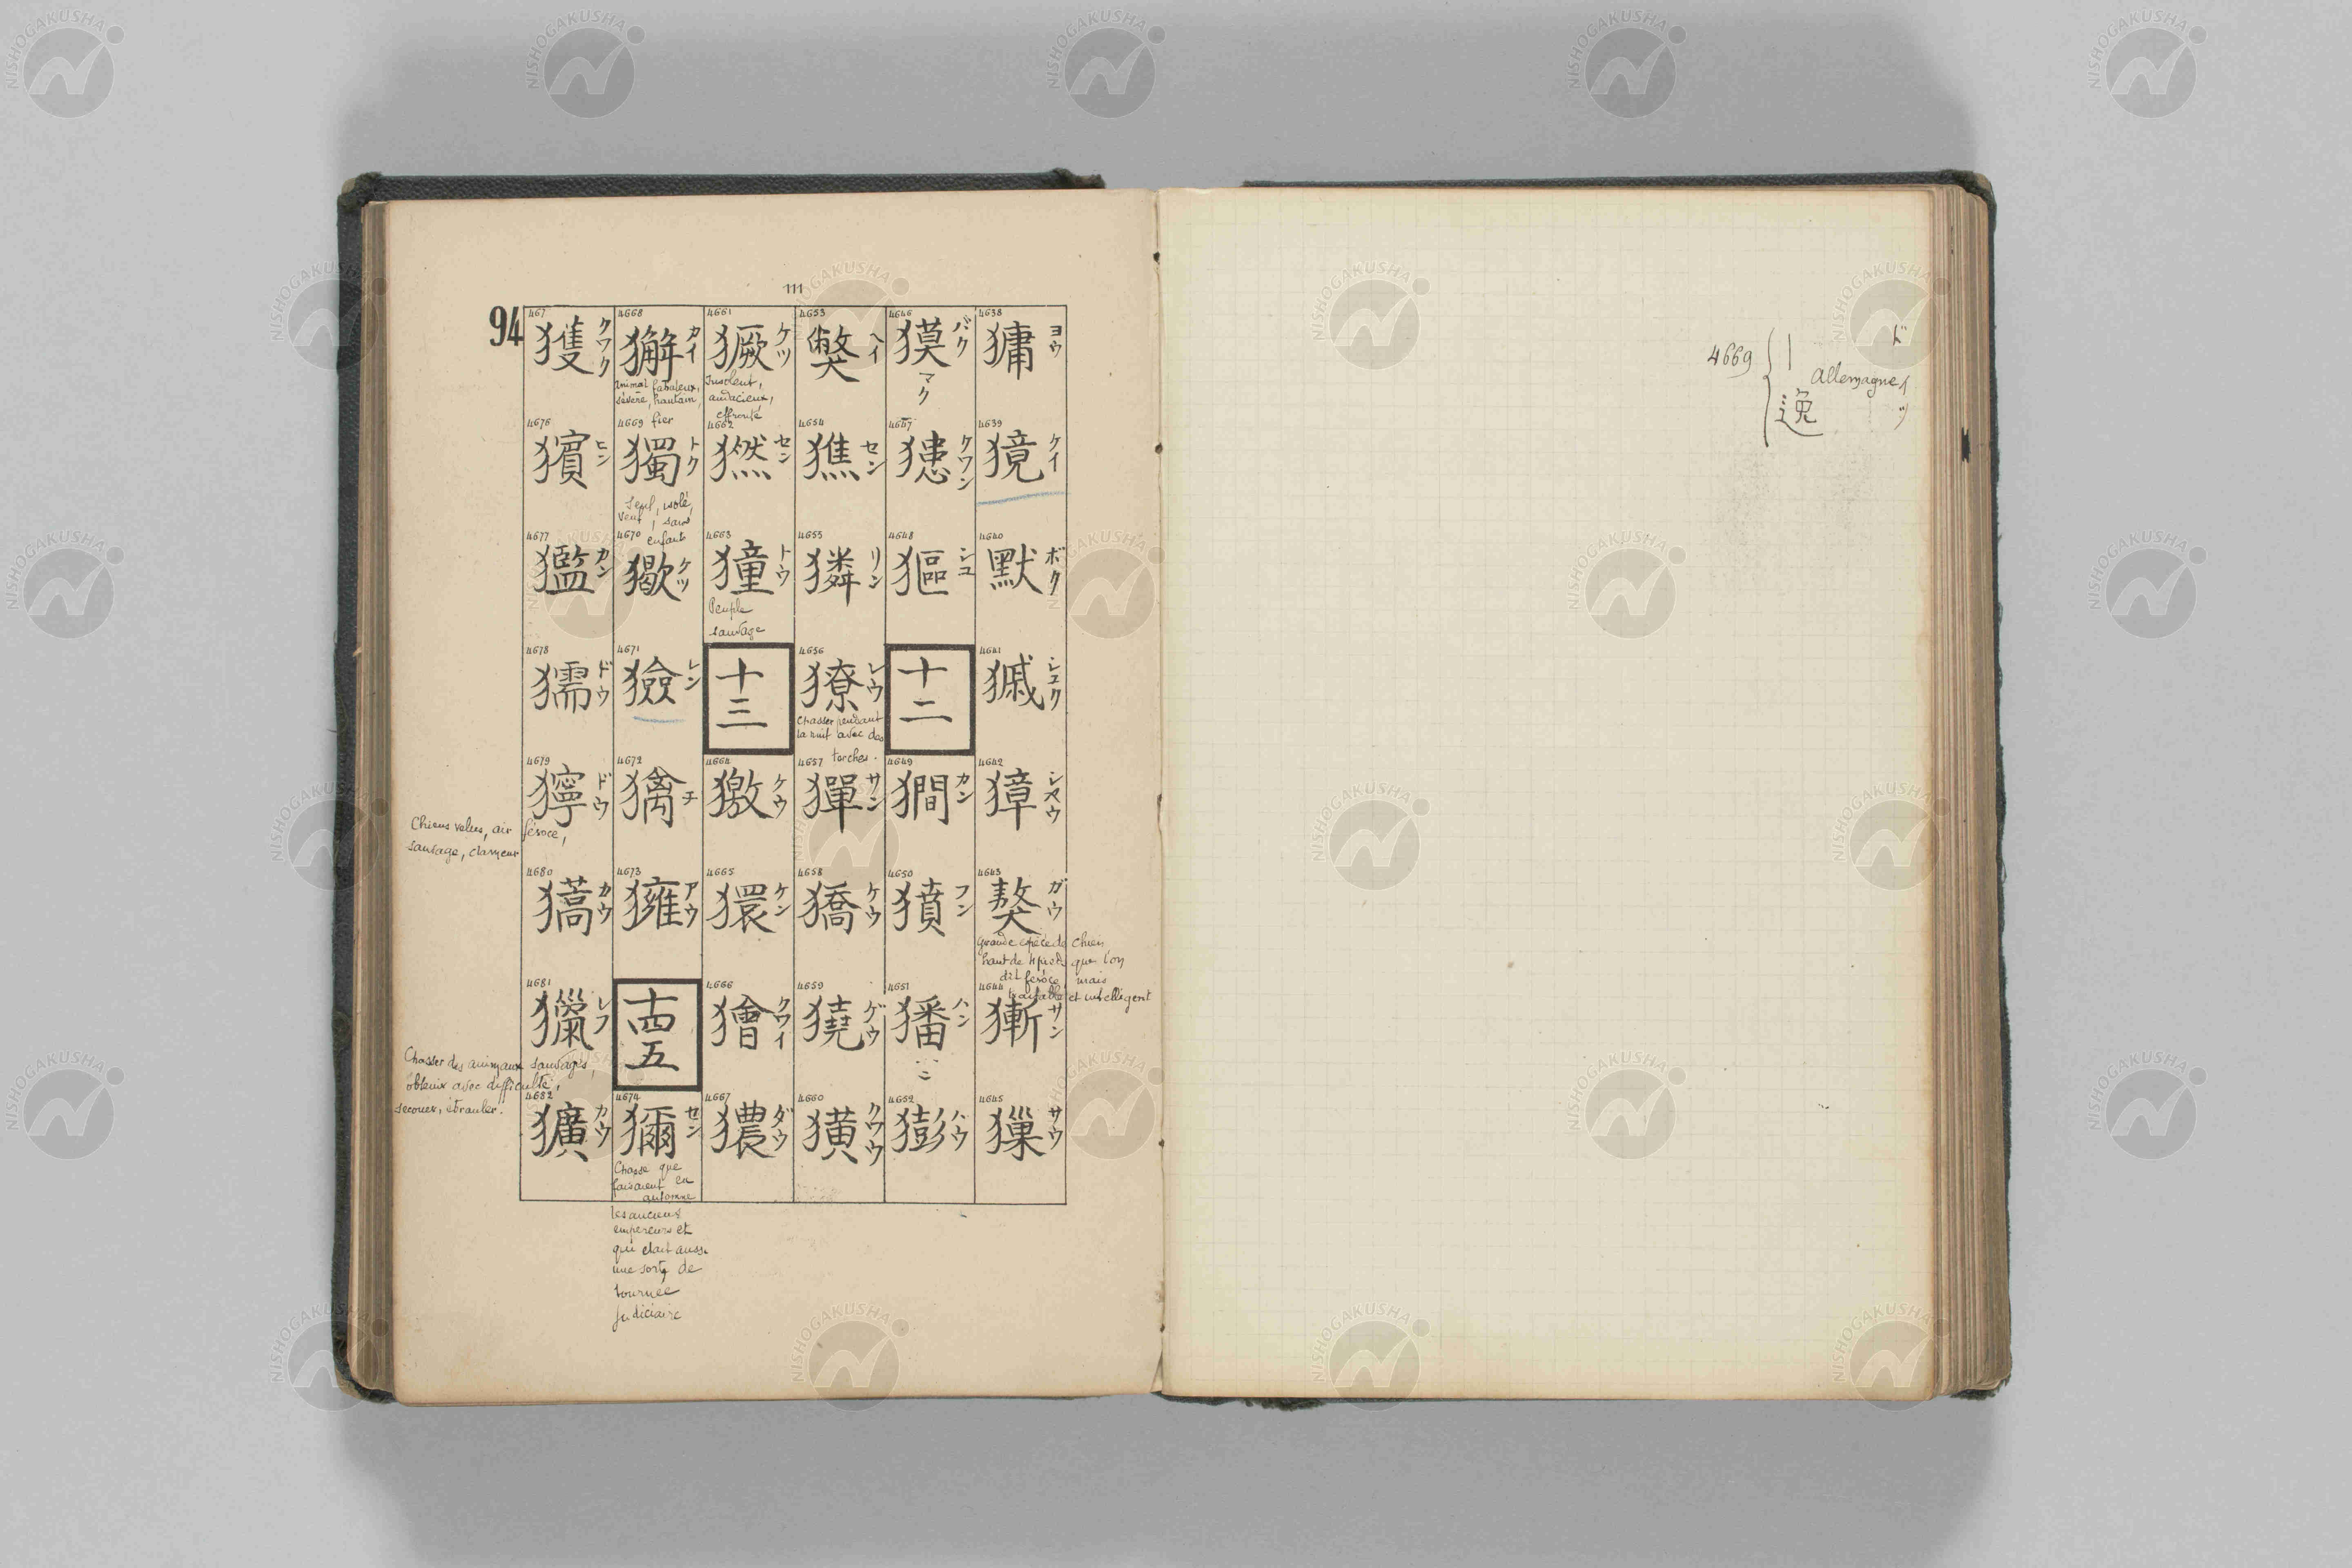 111
94
4638 獚 ヨウ
4639 獍 ケイ
4640 默 ボク
4641 シュク
4642 獐 シヤウ
4643 獒 ガウ
Grande espèce de chien
haut de 4 pieds que l'on
dit féroce mais
traitable et intelligent
4644 獑 サン
4645 獿 サウ
4646 獏 バク
マク
4647 ケワン
4648 シユ
十二
4649 カン
4650 獖 フン
4651 ハン
4652 ハウ
4653 獘 ヘイ
4654 セン
4655 リン
4656 獠 レウ
Chasser pendant
la nuit avec des
torches.
4657 サン
4658 ケウ
4659 ゲウ
4660 獚 クワウ
4661 獗 ケツ
Insolent,
audacieux,
effronté
4662 セン
4663 獞 トウ
Peuple
sauvage
十三
4664 ケウ
4665 獧 ケン
4666 獪 クワイ
4667 ダウ
4668 獬 カイ
Animal fabuleux,
sévère, hautain,
fier
4669 獨 トク
Seul, isolé,
veuf, sans
enfants
4670 ケツ
4671 獫 レン
4672 チ
4673 アウ
十四
五
4674 獮 セン
Chasse que
faisaient en
automne
les anciens
empereurs et
qui était aussi
une sorte de
tournée
judiciaire
467 獲 クワク
4676 獱 ヒン
4677 カン
4678 獳 ドウ
4679 獰 ドウ
Chiens velus, air féroce,
sauvage, clameur
4680 カウ
4681 獵 レフ
Chasser des animaux sauvages,
obtenir avec difficulté,
secouer, ébranler.
4682 獷 カウ
4669 { 丨 逸 Allemagne ドイツ